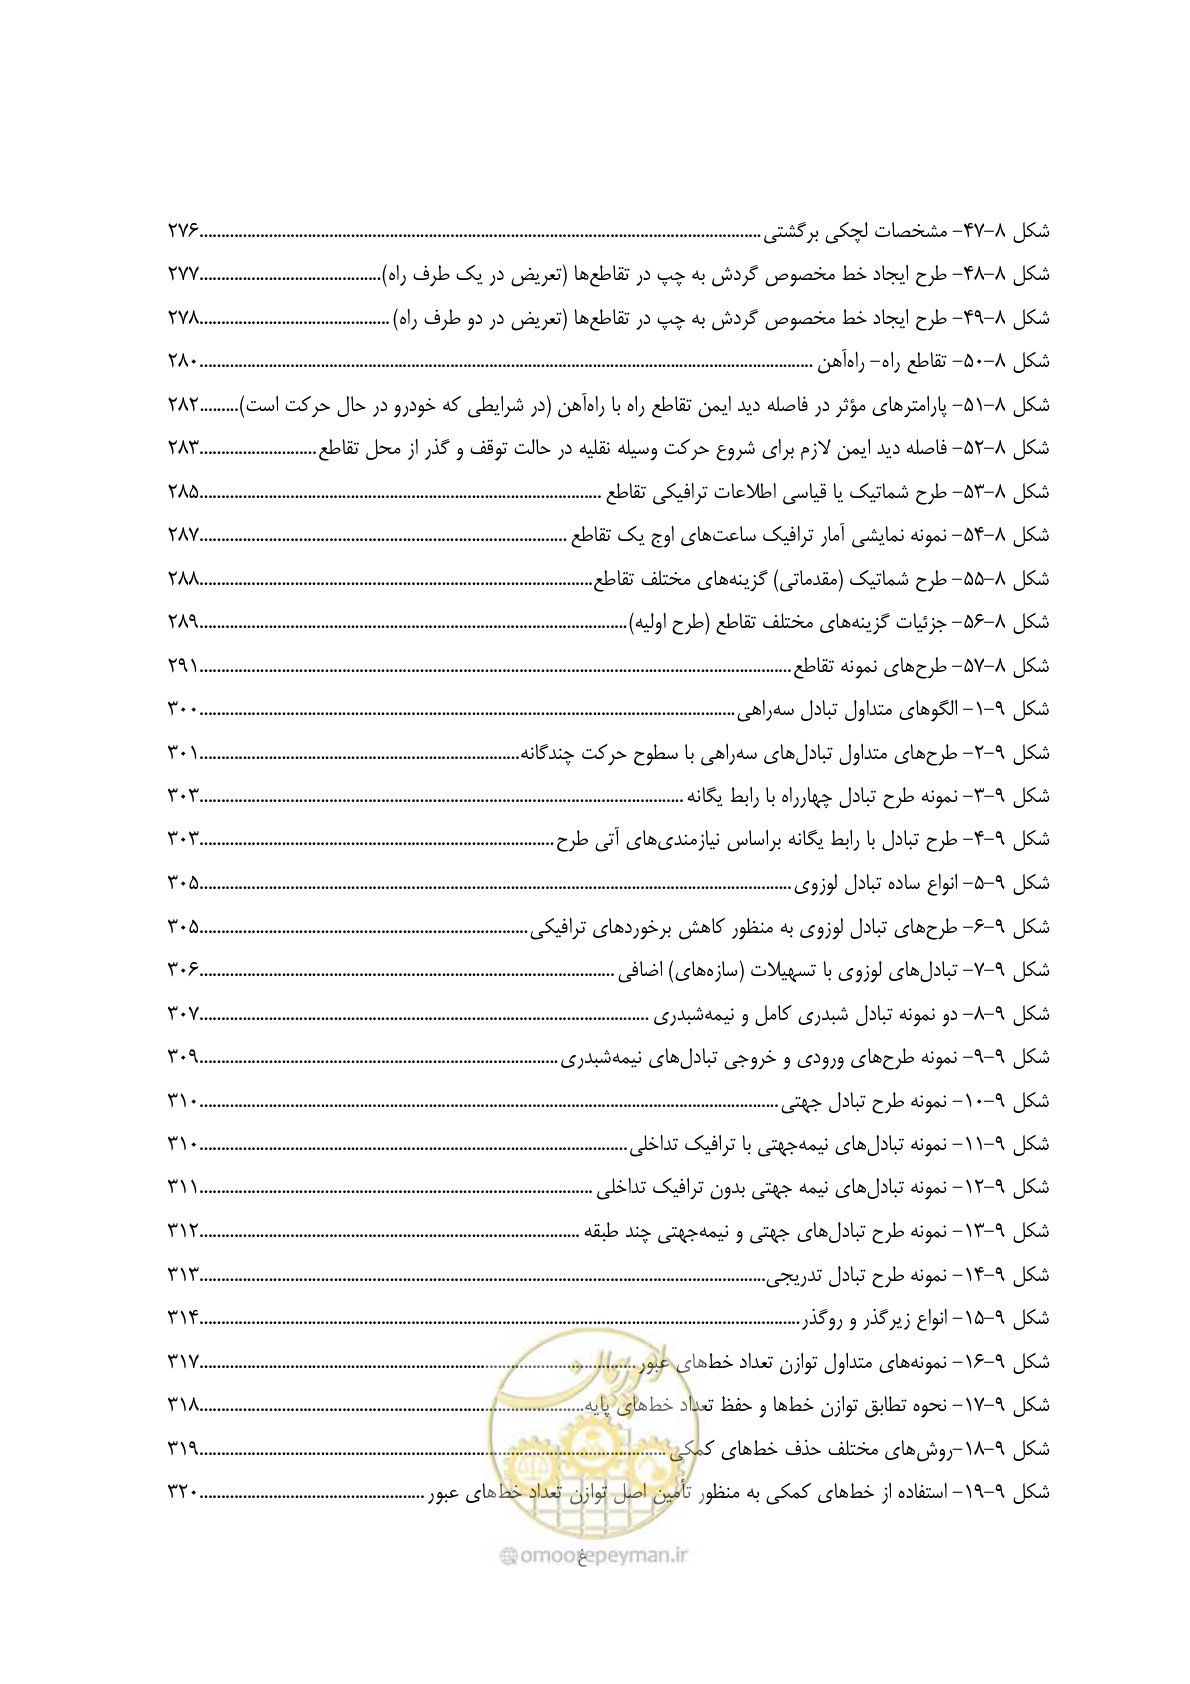 شکل ۸-۴۷- مشخصات لچکی برگشتی ۲۷۶
شکل ۸-۴۸- طرح ایجاد خط مخصوص گردش به چپ در تقاطع‌ها (تعریض در یک طرف راه) ۲۷۷
شکل ۸-۴۹- طرح ایجاد خط مخصوص گردش به چپ در تقاطع‌ها (تعریض در دو طرف راه) ۲۷۸
شکل ۸-۵۰- تقاطع راه- راه‌آهن ۲۸۰
شکل ۸-۵۱- پارامترهای مؤثر در فاصله دید ایمن تقاطع راه با راه‌آهن (در شرایطی که خودرو در حال حرکت است) ۲۸۲
شکل ۸-۵۲- فاصله دید ایمن لازم برای شروع حرکت وسیله نقلیه در حالت توقف و گذر از محل تقاطع ۲۸۳
شکل ۸-۵۳- طرح شماتیک یا قیاسی اطلاعات ترافیکی تقاطع ۲۸۵
شکل ۸-۵۴- نمونه نمایشی آمار ترافیک ساعت‌های اوج یک تقاطع ۲۸۷
شکل ۸-۵۵- طرح شماتیک (مقدماتی) گزینه‌های مختلف تقاطع ۲۸۸
شکل ۸-۵۶- جزئیات گزینه‌های مختلف تقاطع (طرح اولیه) ۲۸۹
شکل ۸-۵۷- طرح‌های نمونه تقاطع ۲۹۱
شکل ۹-۱- الگوهای متداول تبادل سه‌راهی ۳۰۰
شکل ۹-۲- طرح‌های متداول تبادل‌های سه‌راهی با سطوح حرکت چندگانه ۳۰۱
شکل ۹-۳- نمونه طرح تبادل چهارراه با رابط یگانه ۳۰۳
شکل ۹-۴- طرح تبادل با رابط یگانه براساس نیازمندی‌های آتی طرح ۳۰۳
شکل ۹-۵- انواع ساده تبادل لوزوی ۳۰۵
شکل ۹-۶- طرح‌های تبادل لوزوی به منظور کاهش برخوردهای ترافیکی ۳۰۵
شکل ۹-۷- تبادل‌های لوزوی با تسهیلات (سازه‌های) اضافی ۳۰۶
شکل ۹-۸- دو نمونه تبادل شبدری کامل و نیمه‌شبدری ۳۰۷
شکل ۹-۹- نمونه طرح‌های ورودی و خروجی تبادل‌های نیمه‌شبدری ۳۰۹
شکل ۹-۱۰- نمونه طرح تبادل جهتی ۳۱۰
شکل ۹-۱۱- نمونه تبادل‌های نیمه‌جهتی با ترافیک تداخلی ۳۱۰
شکل ۹-۱۲- نمونه تبادل‌های نیمه جهتی بدون ترافیک تداخلی ۳۱۱
شکل ۹-۱۳- نمونه طرح تبادل‌های جهتی و نیمه‌جهتی چند طبقه ۳۱۲
شکل ۹-۱۴- نمونه طرح تبادل تدریجی ۳۱۳
شکل ۹-۱۵- انواع زیرگذر و روگذر ۳۱۴
شکل ۹-۱۶- نمونه‌های متداول توازن تعداد خط‌های عبور ۳۱۷
شکل ۹-۱۷- نحوه تطابق توازن خط‌ها و حفظ تعداد خط‌های پایه ۳۱۸
شکل ۹-۱۸-روش‌های مختلف حذف خط‌های کمکی ۳۱۹
شکل ۹-۱۹- استفاده از خط‌های کمکی به منظور تأمین اصل توازن تعداد خط‌های عبور ۳۲۰
غ
@omoorepeyman.ir